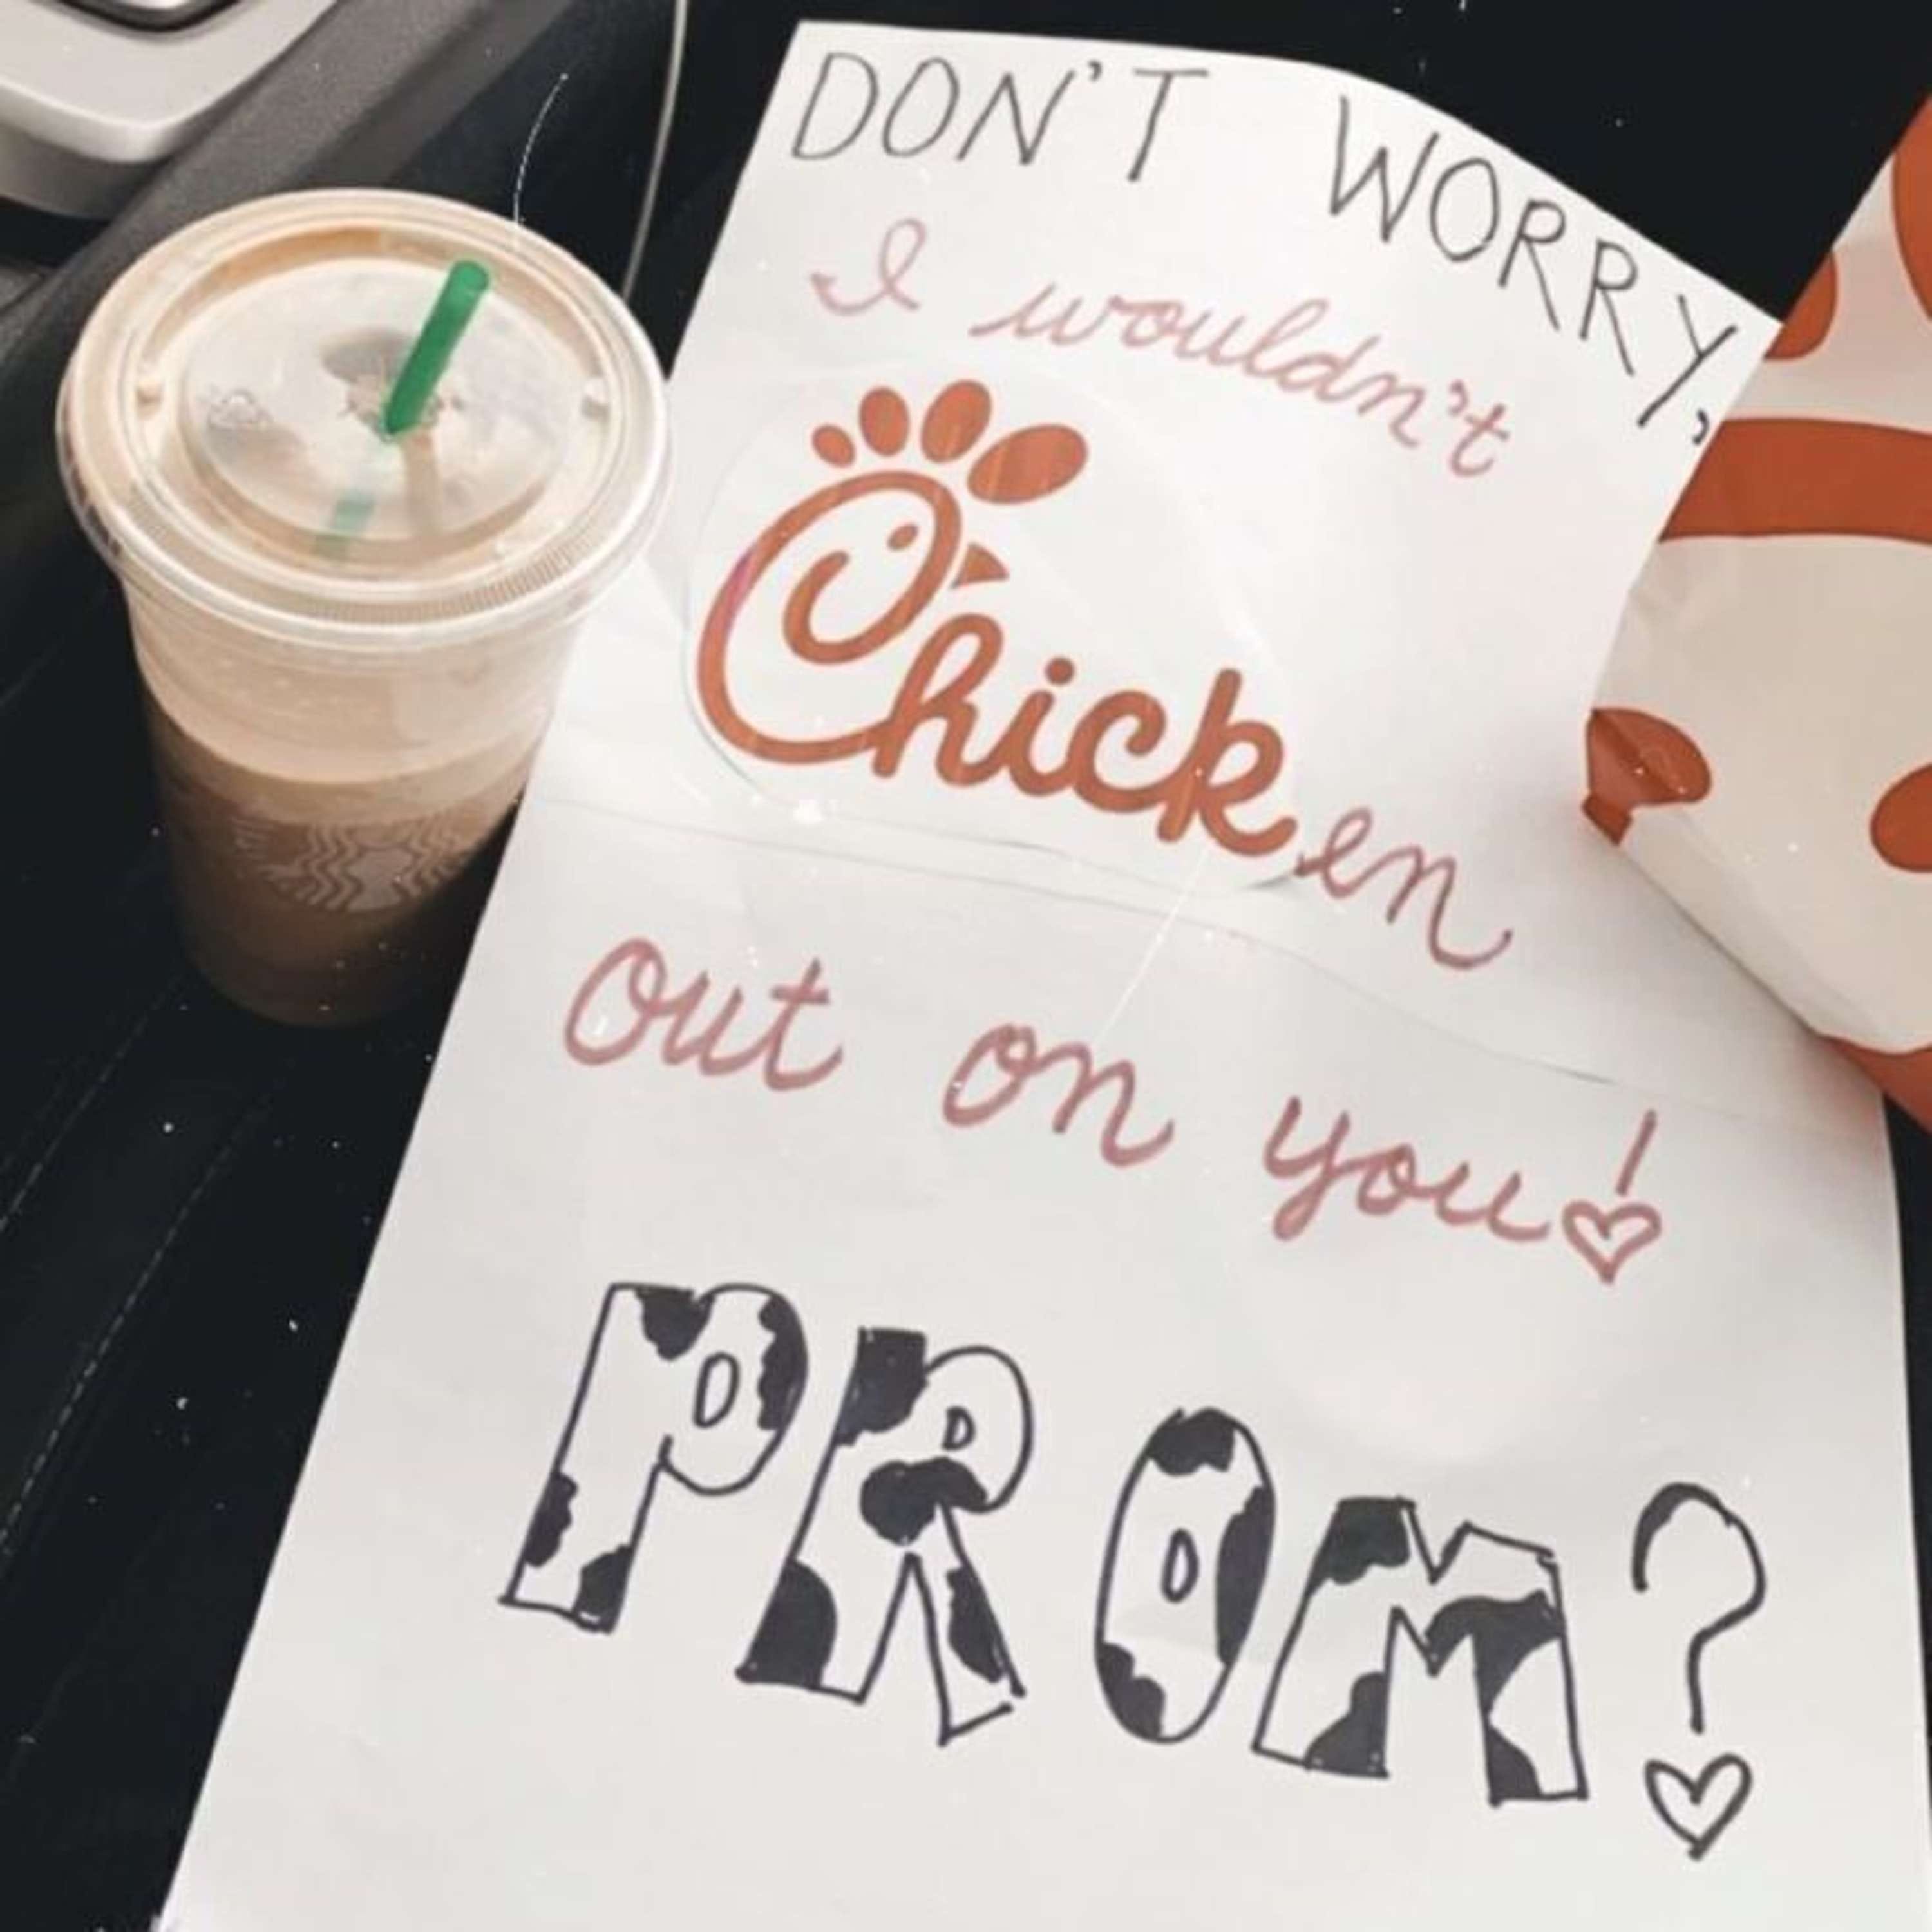 DON'T WORRY,
I wouldn't
Chicken
out on you!
PROM?